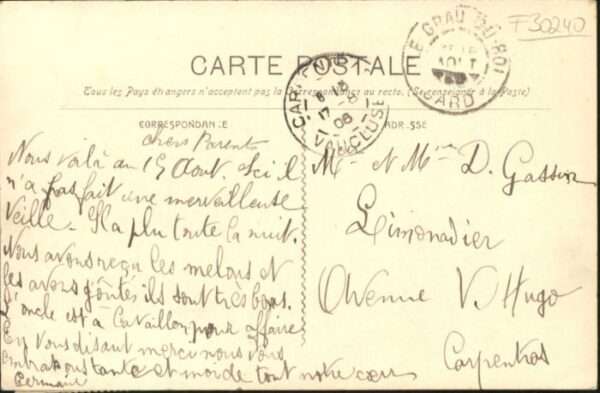 F30240
CARTE POSTALE
Tous les Pays étrangers n'acceptent pas la Correspondance au recto. (Se renseigner à la Poste)
LE GRAU-DU-ROI
AOUT
GARD
VAUCLUSE
17-8
08
CORRESPONDANCE
ADRESSE
chers Parents
Nous voilà au 15 Aout. Ici il
n'a pas fait une merveilleuse
Veille. Il a plu toute la nuit.
Nous avons reçu les melons et
les avons goûtés ils sont très bons.
L'oncle est à Cavaillon pour affaire
En vous disant merci nous vous
embrassons tante et moi de tout notre cœur
Germaine
Mr et Mme D. Gassin
Limonadier
Avenue V. Hugo
Carpentras